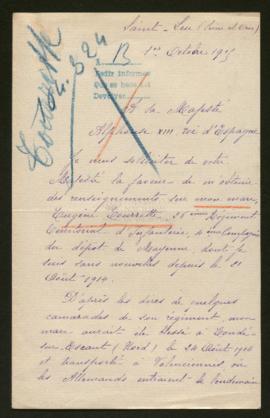 Saint-Leu (Seine et Oise)
1er Octobre 1915
A B
Pedir informes
A sa Majesté
Alphonse XIII roi d'Espagne
Je viens solliciter de votre
Majesté la faveur de m'obtenir
des renseignements sur mon mari,
Eugène Tourrette, 26 ième Régiment
Territorial d'infanterie, compagnie
du dépôt de Mayenne dont je
suis sans nouvelles depuis le 21
Août 1914.
D'après les dires de quelques
camarades de son régiment mon
mari aurait été blessé à Condé-
sur-Escaut (Nord) le 24 Août 1914
et transporté à Valenciennes, où
les Allemands entraient le lendemain